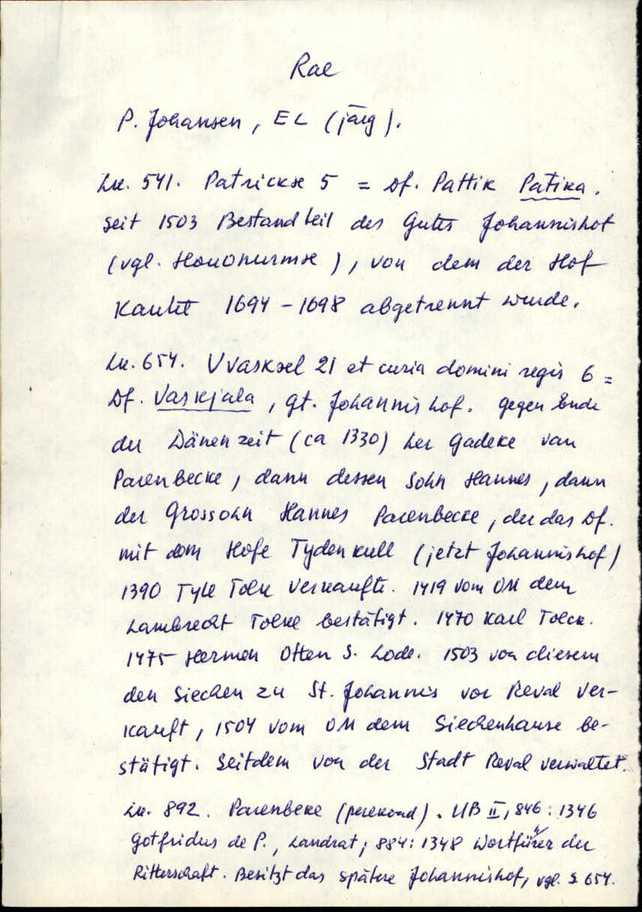 Rae
P. Johansen, EL (järg).
Lk. 541. Patrickæ 5 = Df. Pattik Patika.
Seit 1503 Bestandteil des Gutes Johannishof
(vgl. Houonurmæ), von dem der Hof
Kautel 1694-1698 abgetrennt wurde.
Lk. 654. Uvaskæl 21 et curia domini regis 6 =
Df. Vaskjala, Gt. Johannishof. Gegen Ende
der Dänenzeit (ca 1330) her Gadeke van
Parenbecke, dann dessen Sohn Hannes, dann
der Grossohn Hannes Parenbecke, der das Df.
mit dem Hofe Tydenkull (jetzt Johannishof)
1390 Tyle Tolk verkaufte. 1419 vom OM dem
Lambrecht Tolke bestätigt. 1470 Karl Tolck.
1475 Hermen Otten S. Lode. 1503 von diesem
den Siechen zu St. Johannis vor Reval ver-
kauft, 1504 vom OM dem Siechenhause be-
stätigt. Seitdem von der Stadt Reval verwaltet.
Lk. 892. Parenbeke (perekond). UB II, 846: 1346
Gotfridus de P., Landrat; 884: 1348 Wortführer der
Ritterschaft. Besitzt das spätere Johannishof, vgl. S 654.